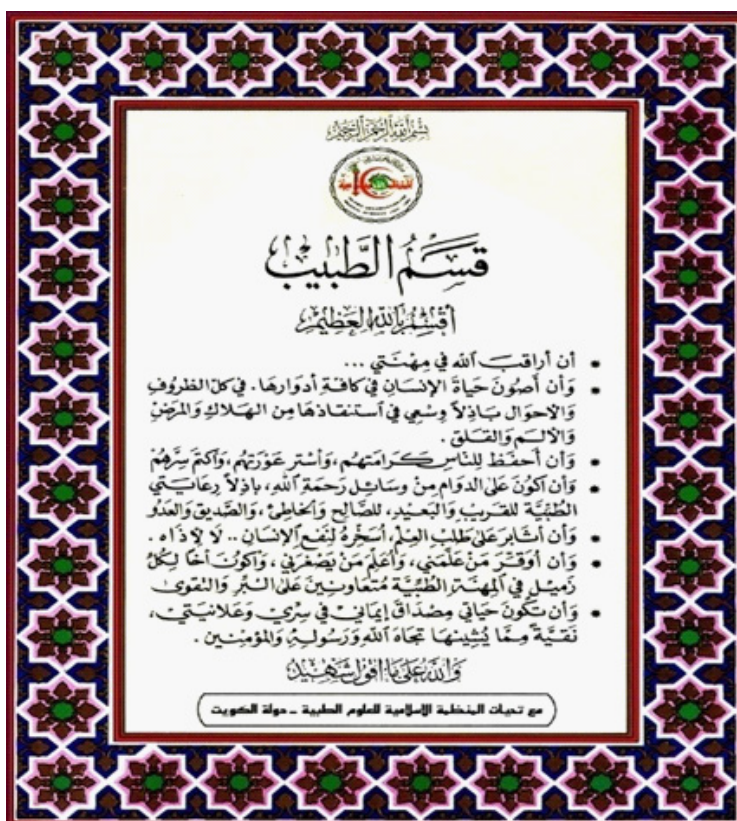 بسم الله الرحمن الرحيم
قَسَمُ الطَّبِيب
أقسم بالله العظيم
• أن أراقب الله في مِهْنَتي ...
• وَأن أصُونَ حَيَاةَ الإنسَانِ في كافةِ أدوَارهَا. في كلّ الظروفِ
وَالأحوَال بَاذِلاً وسْعِي في استنقاذهَا مِن الهَلاكِ وَالمَرَضِ
وَالألَم وَالقَلَق .
• وَأن أحفَظ لِلنّاسِ كَرَامَتهُم، وَأسْتر عَوْرَتهُم، وَأكتمَ سِرَّهُمْ
• وَأن أكونَ عَلى الدوَام مِنْ وسَائل رَحمَة اللهِ، باذِلاً رِعَايَتي
الطِبّيَّة للقَريبِ وَالبَعيدِ، للصَالِحِ وَالخَاطِئ، وَالصَّديق وَالعَدُو
• وَأن أثابرَ عَلى طَلبِ العِلم، أسَخّرهُ لِنَفع الإنسَان .. لا لأذَاه .
• وَأن أوَقّرَ مَنْ عَلّمَني، وَأعَلّمَ مَنْ يَصْغرَني، وَأكونَ أخًا لِكُلِّ
زَميلٍ في المِهنَةِ الطِبّيَّة مُتعَاونينَ عَلى البّر وَالتقوى
• وَأن تكُونَ حَيَاتي مِصْدَاقَ إيمَاني في سِرّي وَعَلانيَتي،
نَقيَّةً مِمَّا يُشينهَا تجَاهَ اللهِ وَرَسُولِهِ وَالمُؤمِنين .
وَالله عَلى مَا أقول شَهيد
مع تحيات المنظمة الاسلامية للعلوم الطبية – دولة الكويت